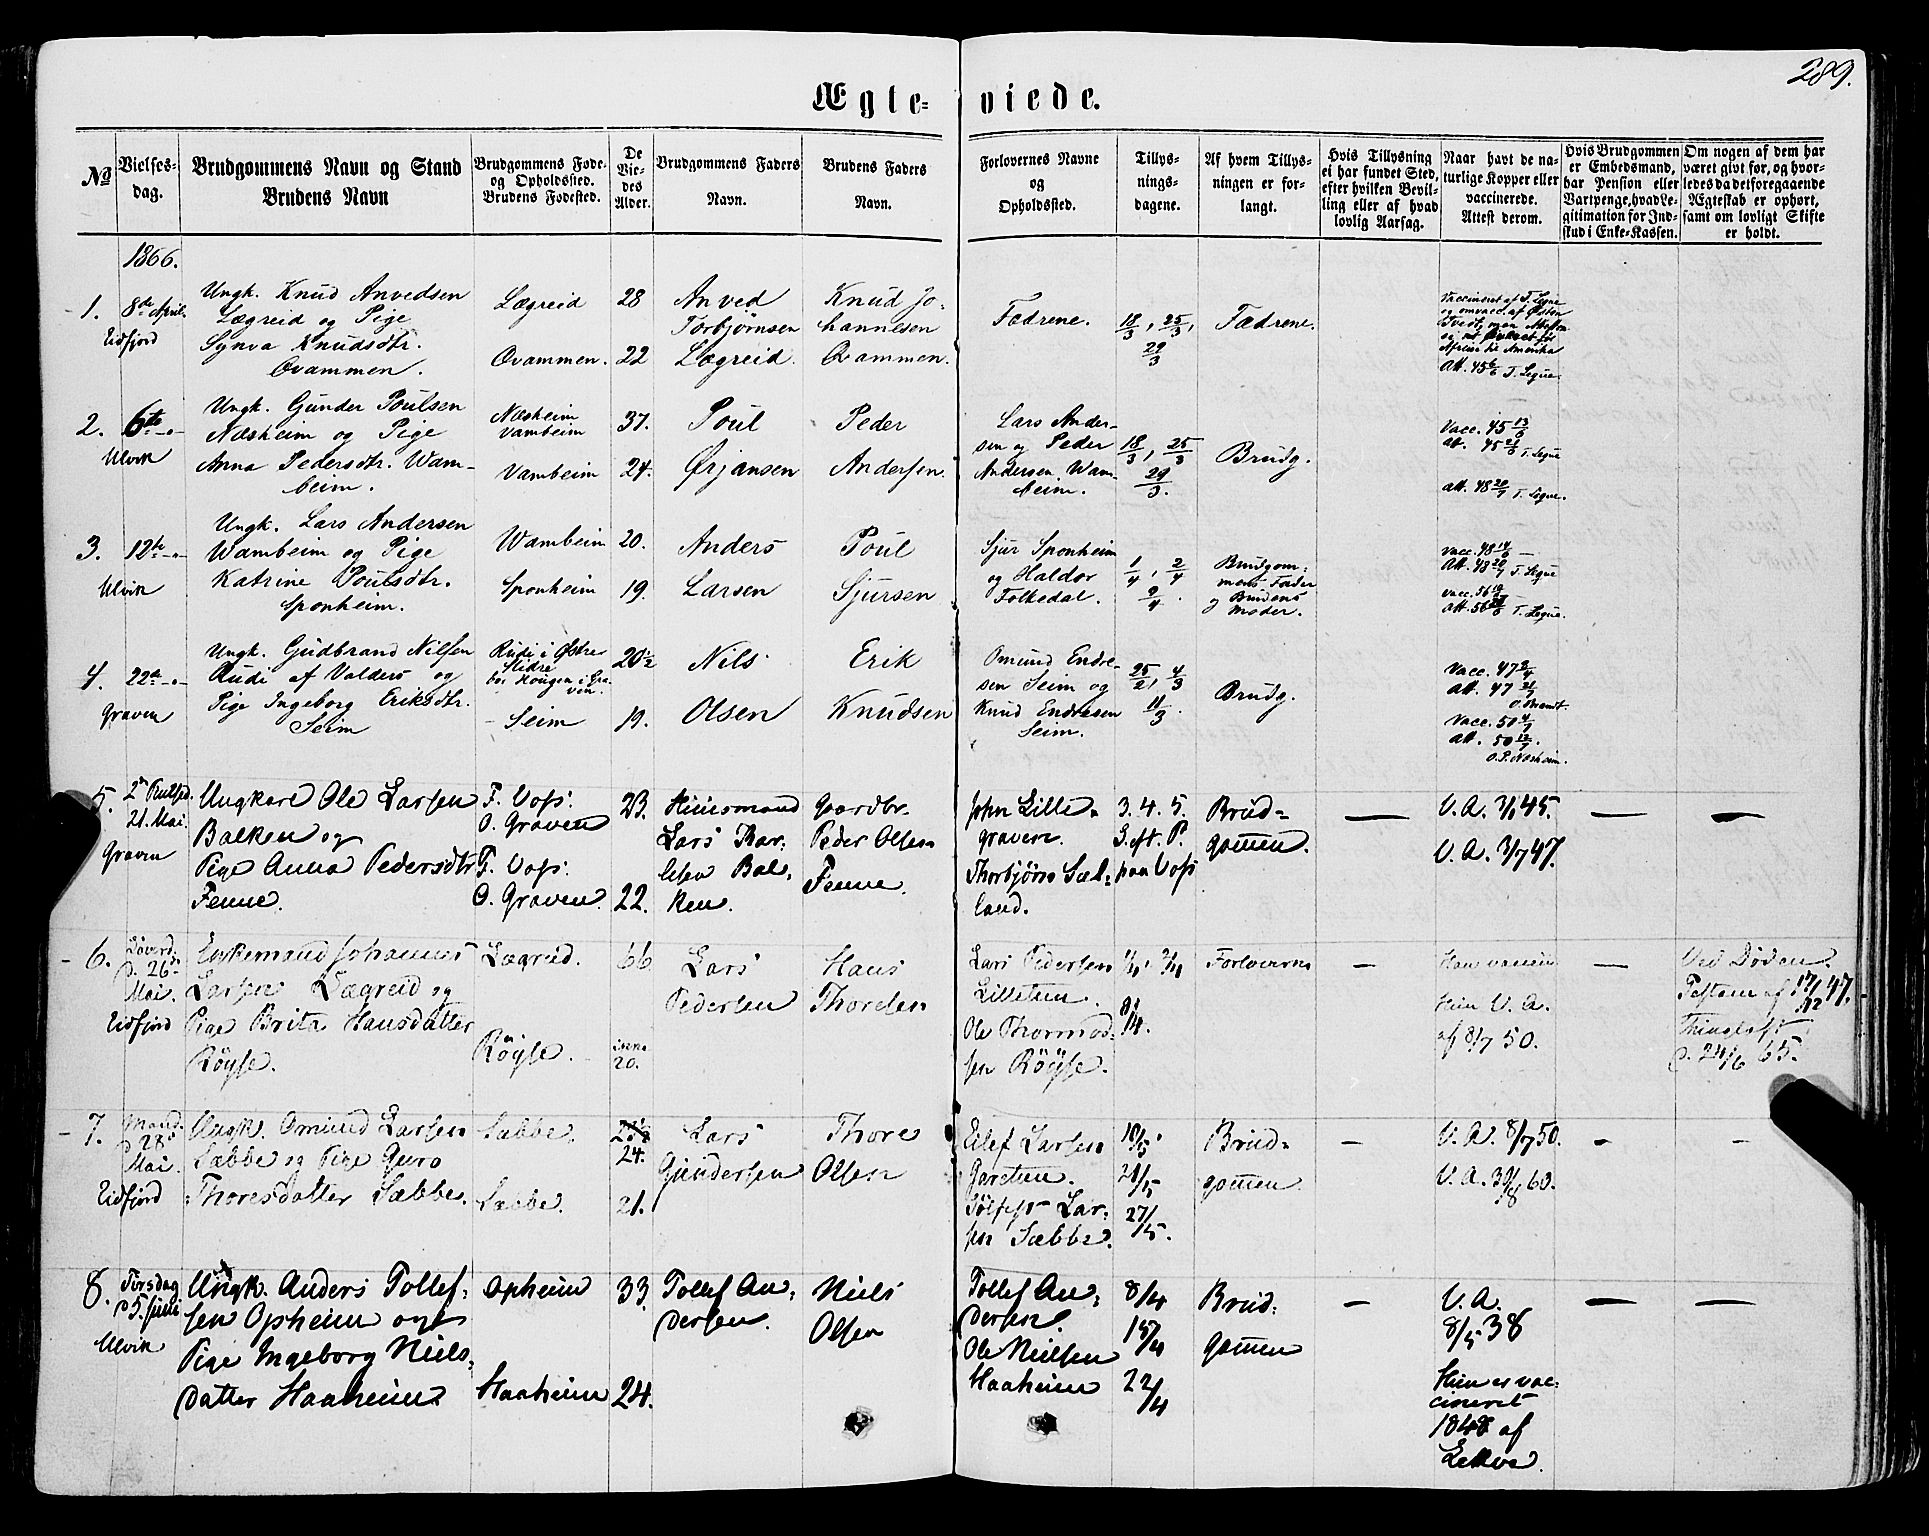 289.
Ægteviede.
No
Vielses-
dag.
Brudgommens Navn og Stand
Brudens Navn
Brudgommens Føde-
og Opholdssted.
Brudens Fødested.
De
Vie-
des
Alder.
Brudgommens Faders
Navn.
Brudens Faders
Navn.
Forlovernes Navne
og
Opholdssted.
Tillys-
nings-
dagene.
Af hvem Tillys-
ningen er for-
langt.
Hvis Tillysning
ei har fundet Sted,
efter hvilken Bevil-
ling eller af hvad
lovlig Aarsag.
Naar havt de na-
turlige Kopper eller
vaccinerede.
Attest derom.
Hvis Brudgommen
er Embedsmand,
har Pension eller
Vartpenge, hvad Le-
gitimation for Ind-
skud i Enke-Kassen.
Om nogen af dem har
været givt før, og hvor-
ledes da det foregaaende
Ægteskab er ophørt,
samt om lovligt Skifte
er holdt.
1866.
1.
8de April.
Eidfjord
Ungk. Knud Anvedsen
Lægreid og Pige
Synva Knudsdtr.
Qvammen.
Lægreid
Qvammen.
28
22
Anved
Torbjørnsen
Lægreid.
Knud Jo-
hannesen
Qvammen.
Fædrene.
18/3, 25/3,
29/3
Fædrene.
Vaccineret af T. Legue
og omvacc. af Østen
Att. 45 6/6 T. Legue.
2.
6te -"-
Ulvik
Ungk. Gunder Poulsen
Næsheim og Pige
Anna Pedersdtr. Wam-
beim.
Næsheim
Vambeim
Vambeim
37.
24.
Poul
Ørjansen
Peder
Andersen.
Lars Ander-
sen og Peder
Andersen Wam-
beim.
18/3, 25/3
29/3.
Brudg.
Vacc. 45 13/6
att. 45 26/6 T. Legue
att. 48 20/7 T. Legue.
3.
12te -"-
Ulvik
Ungk. Lars Andersen
Wambeim og Pige
Katrine Poulsdtr.
Sponheim.
Wambeim
Sponheim
20.
19.
Anders
Larsen
Poul
Sjursen
Sjur Sponheim
og Haldor
Folkedal.
1/4, 2/4
2/4.
Brudgom-
mens Fader
og Brudens
Moder.
Vacc. 48 14/6 —
Att. 48 20/7 T. Legue
T. Legue.
4.
22de -"-
Graven
Ungk. Gudbrand Nilsen
Rudi af Valders og
Pige Ingeborg Eriksdtr.
Seim
Rudi i Østre
Slidre
bor Haugen i Gra-
ven.
- Seim
20½
19.
Nils
Olsen
Erik
Knudsen
Omund Endre-
sen Seim og
Knud Endresen
Seim.
25/2, 4/3
11/3.
Brudg.
Vacc. 47 2/4
att. 47 21/7
Vacc. 50 4/7
att. 50 12/7.
O. P. Næsheim.
5.
21. Mai.
Graven
Ungkarl Ole Larsen
Balken og
Pige Anna Pedersdtr
Fenne.
F. Voss.
O. Graven
F. Voss.
O. Graven.
23.
22.
Huusmand
Lars Bar-
Balken.
Gaardbr.
Peder Olsen
Fenne.
John Lille-
graven.
Thorbjørn Sæl-
land.
3. 4. 5.
S. eft. P.
paa Voss
Brud-
gommen.
—
V. A. 3/1 45.
V. A. 3/7 47.
—
—
6.
Løverd.
d. 26
Mai.
Eidfjord
Enkemand Johannes
Larsen Lægreid og
Pige Brita Hansdatter
Röyse.
Lægreid.
Röyse.
66
20.
Lars
Pedersen
Hans
Thorsen
Lars Pedersen
Lilletun.
Ole Thormod-
sen Röyse.
8/4.
Forloverne
—
Han vaccin
Hun V. A.
af 8/7 50.
—
Ved Döden.
Testam. af 17/12 47.
Thinglæst
d. 24/6 65.
7.
Mand.
d 28
Mai.
Eidfjord
Ungk. Omund Larsen
Sæbbe og Pige Guro
Thoresdatter Sæbbe.
Sæbbe.
Sæbbe.
24.
21.
Lars
Gundersen
Thore
Olsen
Eilef Larsen
Garetun.
Sølfest Lar-
sen Sæbbe.
10/5.
21/5
27/5.
Brud-
gommen.
—
V. A. 8/7 50.
V. A. 30/8 60.
—
—
8.
Tirsdag
d 5. Juni
Ulvik
Ungk. Anders Tollef-
sen Opheim og
Pige Ingeborg Niels-
datter Haaheim
Opheim
Haaheim
33.
24.
Tollef An-
dersen.
Niels
Olsen
Tollef An-
dersen.
Ole Nielsen
Haaheim
8/4
15/4
22/4
Brud-
gommen
—
V. A.
8/5 38
Hun er vac-
cineret
1848 af
Lekve.
—
—